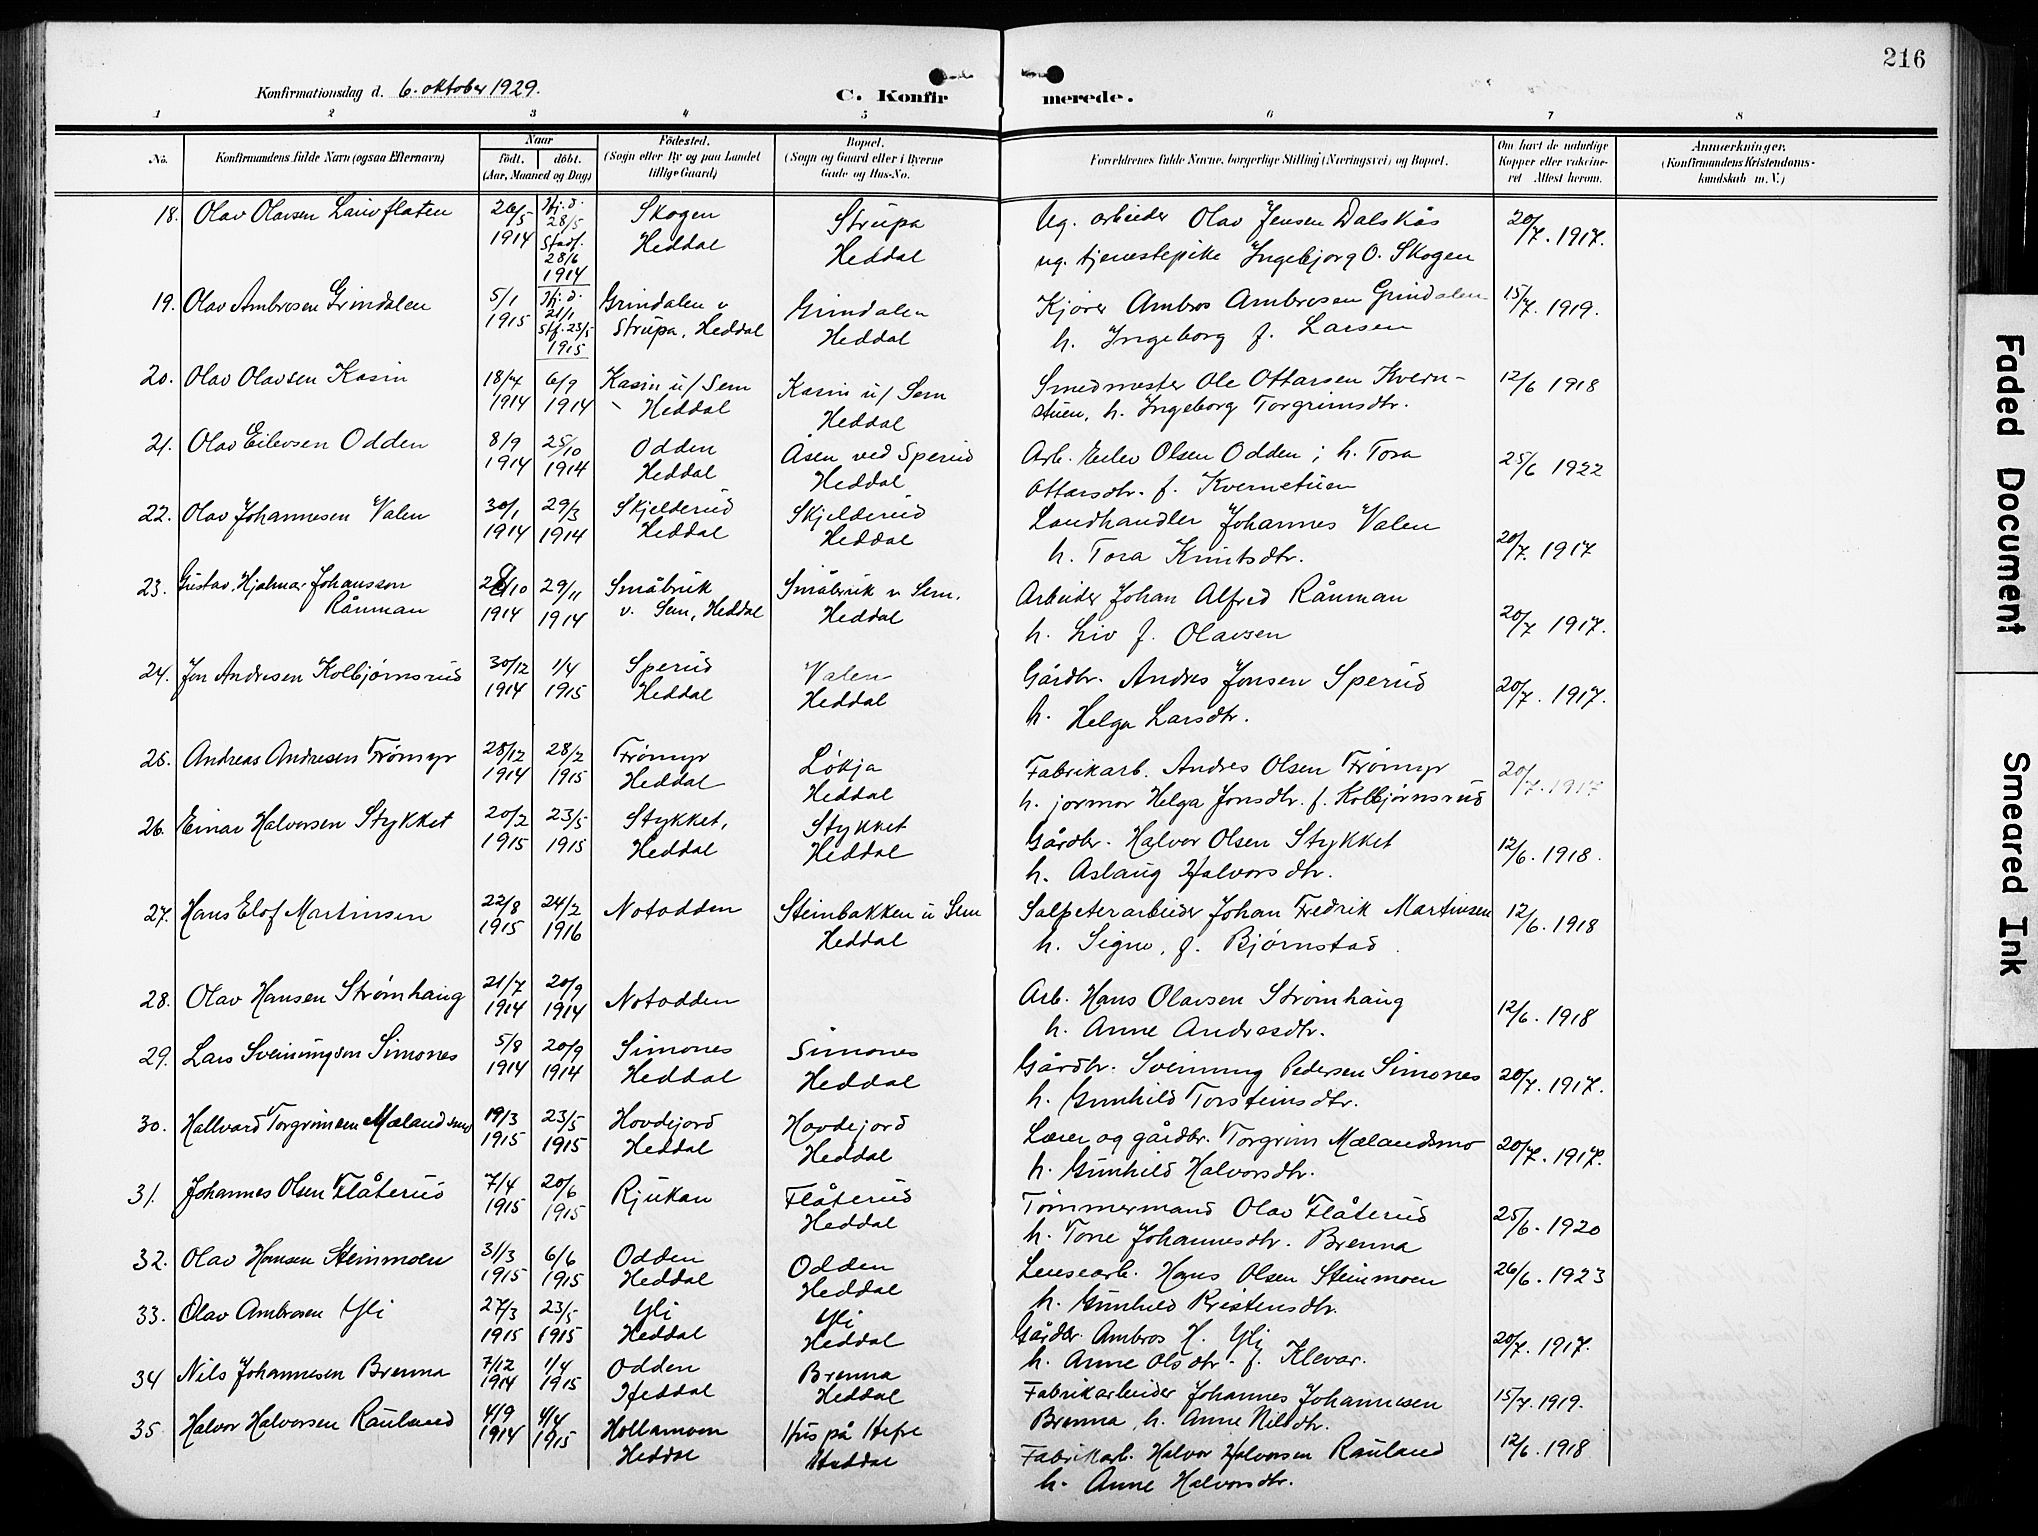 216
Konfirmationsdag d. 6. oktober 1929.
C. Konfirmerede.
1 2 3 4 5 6 7 8
No. Konfirmandens fulde Navn (ogsaa Efternavn) Naar født. døbt. (Aar, Maaned og Dag) Fødested. (Sogn eller By og paa Landet tillige Gaard) Bopæl. (Sogn og Gaard eller i Byerne Gade og Hus-No. Forældrenes fulde Navne, borgerlige Stilling (Næringsvei) og Bopæl. Om havt de naturlige Kopper eller vakcineret Attest herom. Anmerkninger. (Konfirmandens Kristendomskundskab m. V.)
18. Olav Olavsen Lauvflaten 26/5 1914 Hj. d. 28/5 Stadf. 28/6 1914 Skogen Heddal Strupa Heddal Ug. arbeider Olav Jensen Dalskås 20/7. 1917.
ug. tjenestepike Ingebjorg O. Skogen
19. Olav Ambrosen Grindalen 5/1 1915 Hj. d. 21/1 Stf. 23/5 1915 Grindalen v Strupa, Heddal Grindalen Heddal Kjører Ambros Ambrosen Grindalen 15/7. 1919.
h. Ingeborg f. Larsen
20. Olav Olavsen Kasin 18/7 1914 6/9 1914 Kasin u/ Sem Heddal Kasin u/ Sem Heddal Smedmester Ole Ottarsen Kvern- 12/6 1918
stuen, h. Ingeborg Torgrimsdtr.
21. Olav Eilevsen Odden 8/9 1914 25/10 1914 Odden Heddal Åsen ved Sperud Heddal Arb. Eilev Olsen Odden; h. Tora 25/6 1922
Ottarsdtr. f. Kvernstuen
22. Olav Johannesen Valen 30/1 1914 29/3 1914 Skjelderud Heddal Skjelderud Heddal Landhandler Johannes Valen 20/7. 1917
h. Tora Knutsdtr.
23. Gustav Hjalmar Johansson Rånman 28/10 1914 29/11 1914 Småbruk v. Sem, Heddal Småbruk v Sem. Heddal Arbeider Johan Alfred Rånman 20/7 1917.
h. Liv f. Olavsen
24. Jon Andresen Kolbjørnsrud 30/12 1914 1/4 1915 Sperud Heddal Valen Heddal Gårdbr. Andres Jonsen Sperud 20/7. 1917.
h. Helga Larsdtr.
25. Andreas Andresen Frømyr 28/12 1914 28/2 1915 Frømyr Heddal Løkja Heddal Fabrikarb. Andres Olsen Frømyr 20/7. 1917
h. jormor Helga Jonsdtr. f. Kolbjørnsrud
26. Einar Halvorsen Stykket 20/2 1915 23/5 1915 Stykket, Heddal Stykket Heddal Gårdbr. Halvor Olsen Stykket 12/6. 1918.
h. Aslaug Halvorsdtr.
27. Hans Elof Martinsen 22/8 1915 24/2 1916 Notodden Steinbakken u Sem Heddal Salpeterarbeider Johan Fredrik Martinsen 12/6. 1918
h. Signe, f. Bjørnstad.
28. Olav Hansen Strømhaug 21/7 1914 20/9 1914 Notodden Arb. Hans Olavsen Strømhaug 12/6. 1918
h. Anne Andresdtr.
29. Lars Sveinungsen Simones 5/8 1914 20/9 1914 Simones Heddal Simones Heddal Gårdbr. Sveinung Pedersen Simones 20/7. 1917.
h. Gunhild Torsteinsdtr.
30. Hallvard Torgrimsen Mælandsmo 19/3 1915 23/5 1915 Hovdejord Heddal Hovdejord Heddal Lærer og gårdbr. Torgrim Mælandsmo 20/7. 1917.
h. Gunhild Halvorsdtr.
31. Johannes Olsen Flåterud 7/4 1915 20/6 1915 Rjukan Flåterud Heddal Tømmermand Olav Flåterud 25/6. 1920
h. Tone Johannesdtr. Brenna
32. Olav Hansen Steinmoen 31/3 1915 6/6 1915 Odden Heddal Odden Heddal Lensearb. Hans Olsen Steinmoen 26/6. 1923
h. Gunhild Kristensdtr.
33. Olav Ambrosen Yli 27/3 1915 23/5 1915 Yli Heddal Yli Heddal Gårdbr. Ambros H. Yli 20/7. 1917.
h. Anne Olsdtr. f. Klevar.
34 Nils Johannesen Brenna 7/12 1914 1/4 1915 Odden Heddal Brenna Heddal Fabrikarbeider Johannes Johannesen 15/7. 1919.
Brenna, h. Anne Nilsdtr.
35 Halvor Halvorsen Rauland 4/9 1914 4/4 1915 Hollamoen Heddal Hus på Hefre Heddal Fabrikarb. Halvor Halvorsen Rauland 12/6. 1918
h. Anne Halvorsdtr.
Faded Document
Smeared Ink